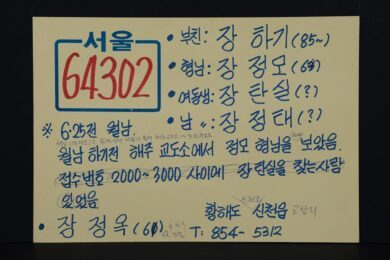 서울
64302
• 부친: 장 하기 (85~)
• 형님: 장 정모 (6)
• 여동생: 장 탄실 (?)
• 남 〃: 장 정태 (?)
※ 6·25전 월남.
월남 하기전 해주 교도소에서 정모 형님을 보았음.
접수번호 2000~3000 사이에 장탄실을 찾는사람
있었음
황해도 신천읍
• 장 정옥 (61) T: 854-5312